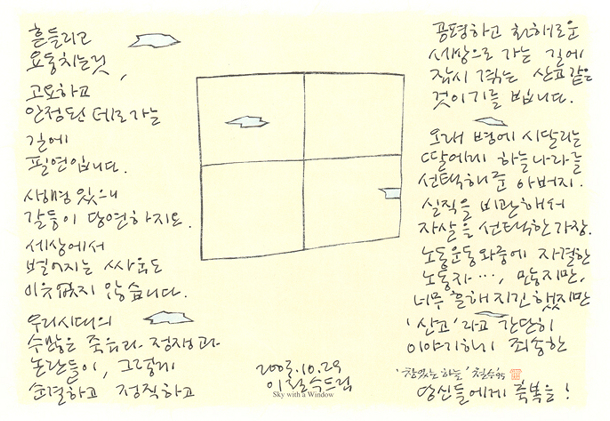 흔들리고
요동치는 것,
고요하고
안정된 데로 가는
길에
필연입니다.
생명 있으니
갈등이 당연하지요.
세상에서
벌어지는 싸움도
이유없지 않습니다.
우리시대의
수많은 죽음과 정쟁과
논란들이, 그렇게
순결하고 정직하고
공평하고 지혜로운
세상으로 가는 길에
잠시 겪는 산고 같은
것이기를 빕니다.
오래 병에 시달리는
딸에게 하늘나라를
선택해 준 아버지.
실직을 비관해서
자살을 선택한 가장.
노동운동 와중에 자결한
노동자…, 많지만,
너무 흔해지긴 했지만
'산고'라고 간단히
이야기하니 죄송한
당신들에게 축복을!
2003.10.29
이철수드림
Sky with a Window
'창있는 하늘' 철수 95